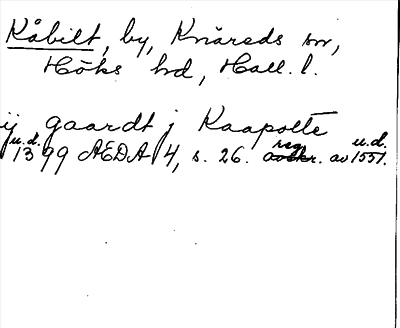 Kåbilt, by, Knäreds sn,
Höks hd, Hall. l.
ij gaardt j Kaapolte
u.d. 1399 ÆDA 4, s. 26. reg. av u.d. 1551.